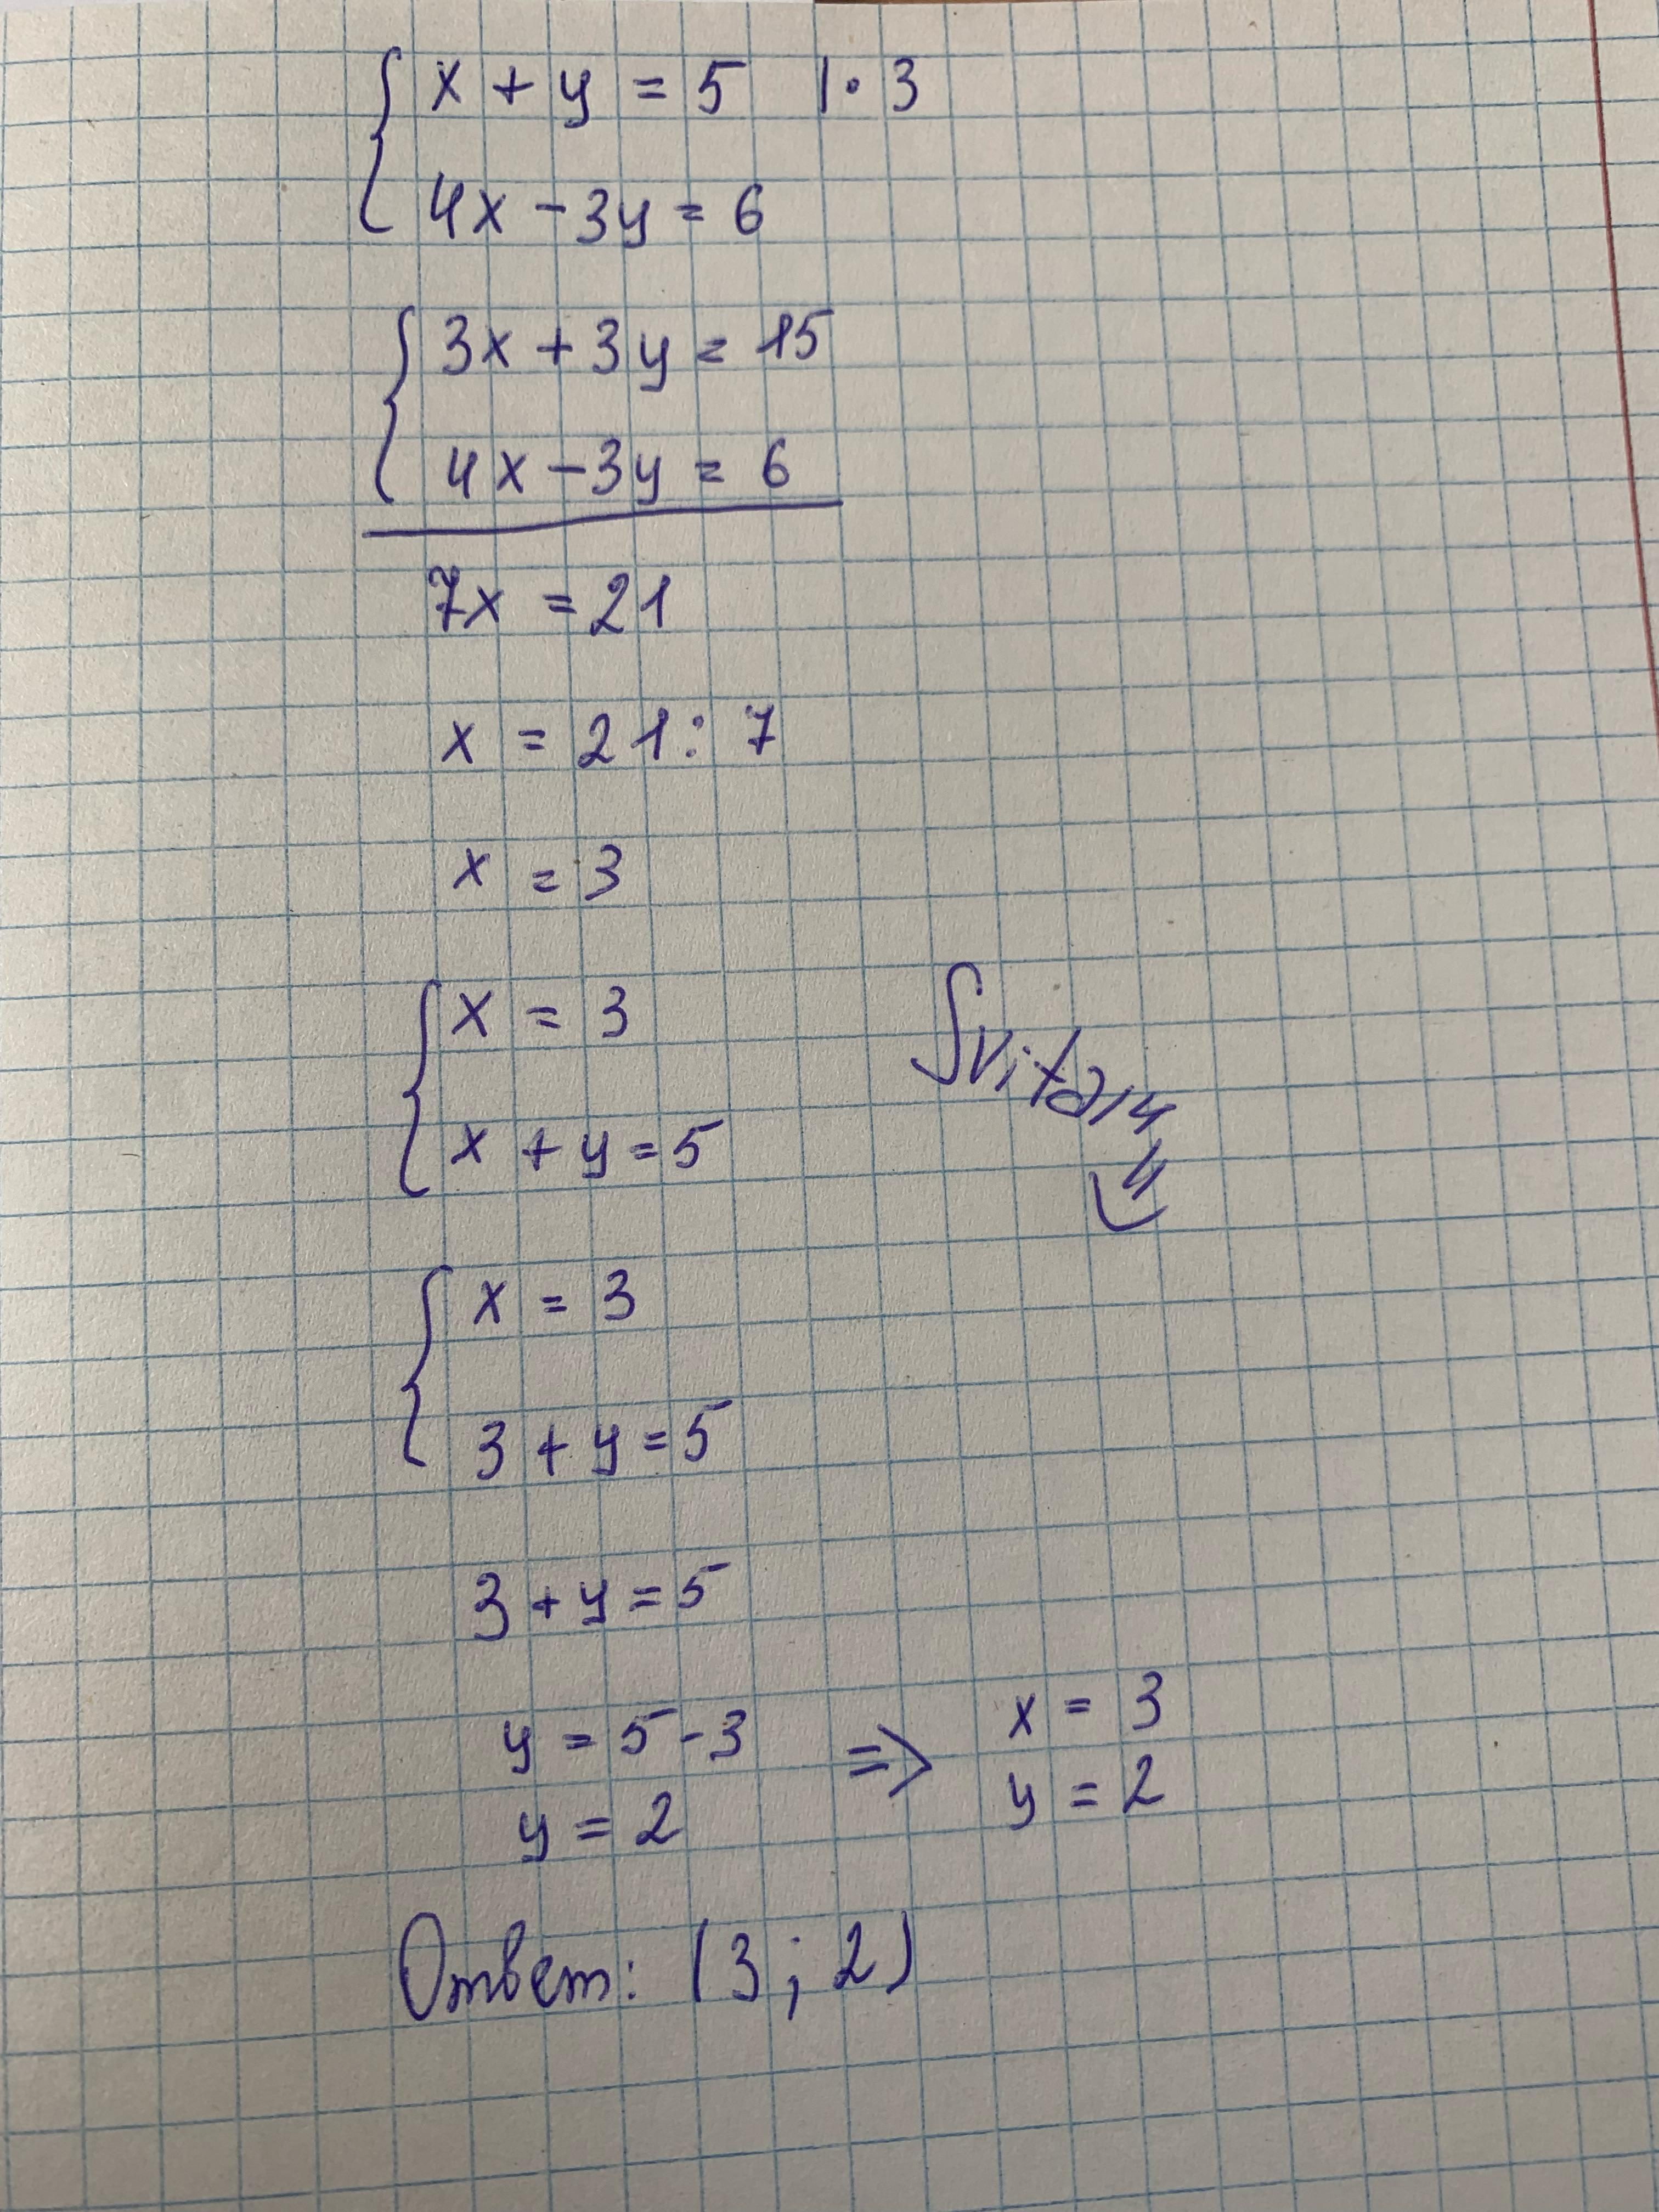 x + y = 5 | · 3
4x - 3y = 6
3x + 3y = 15
4x - 3y = 6
7x = 21
x = 21 : 7
x = 3
x = 3
x + y = 5
x = 3
3 + y = 5
3 + y = 5
y = 5 - 3 => x = 3
y = 2 y = 2
Ответ: (3 ; 2)